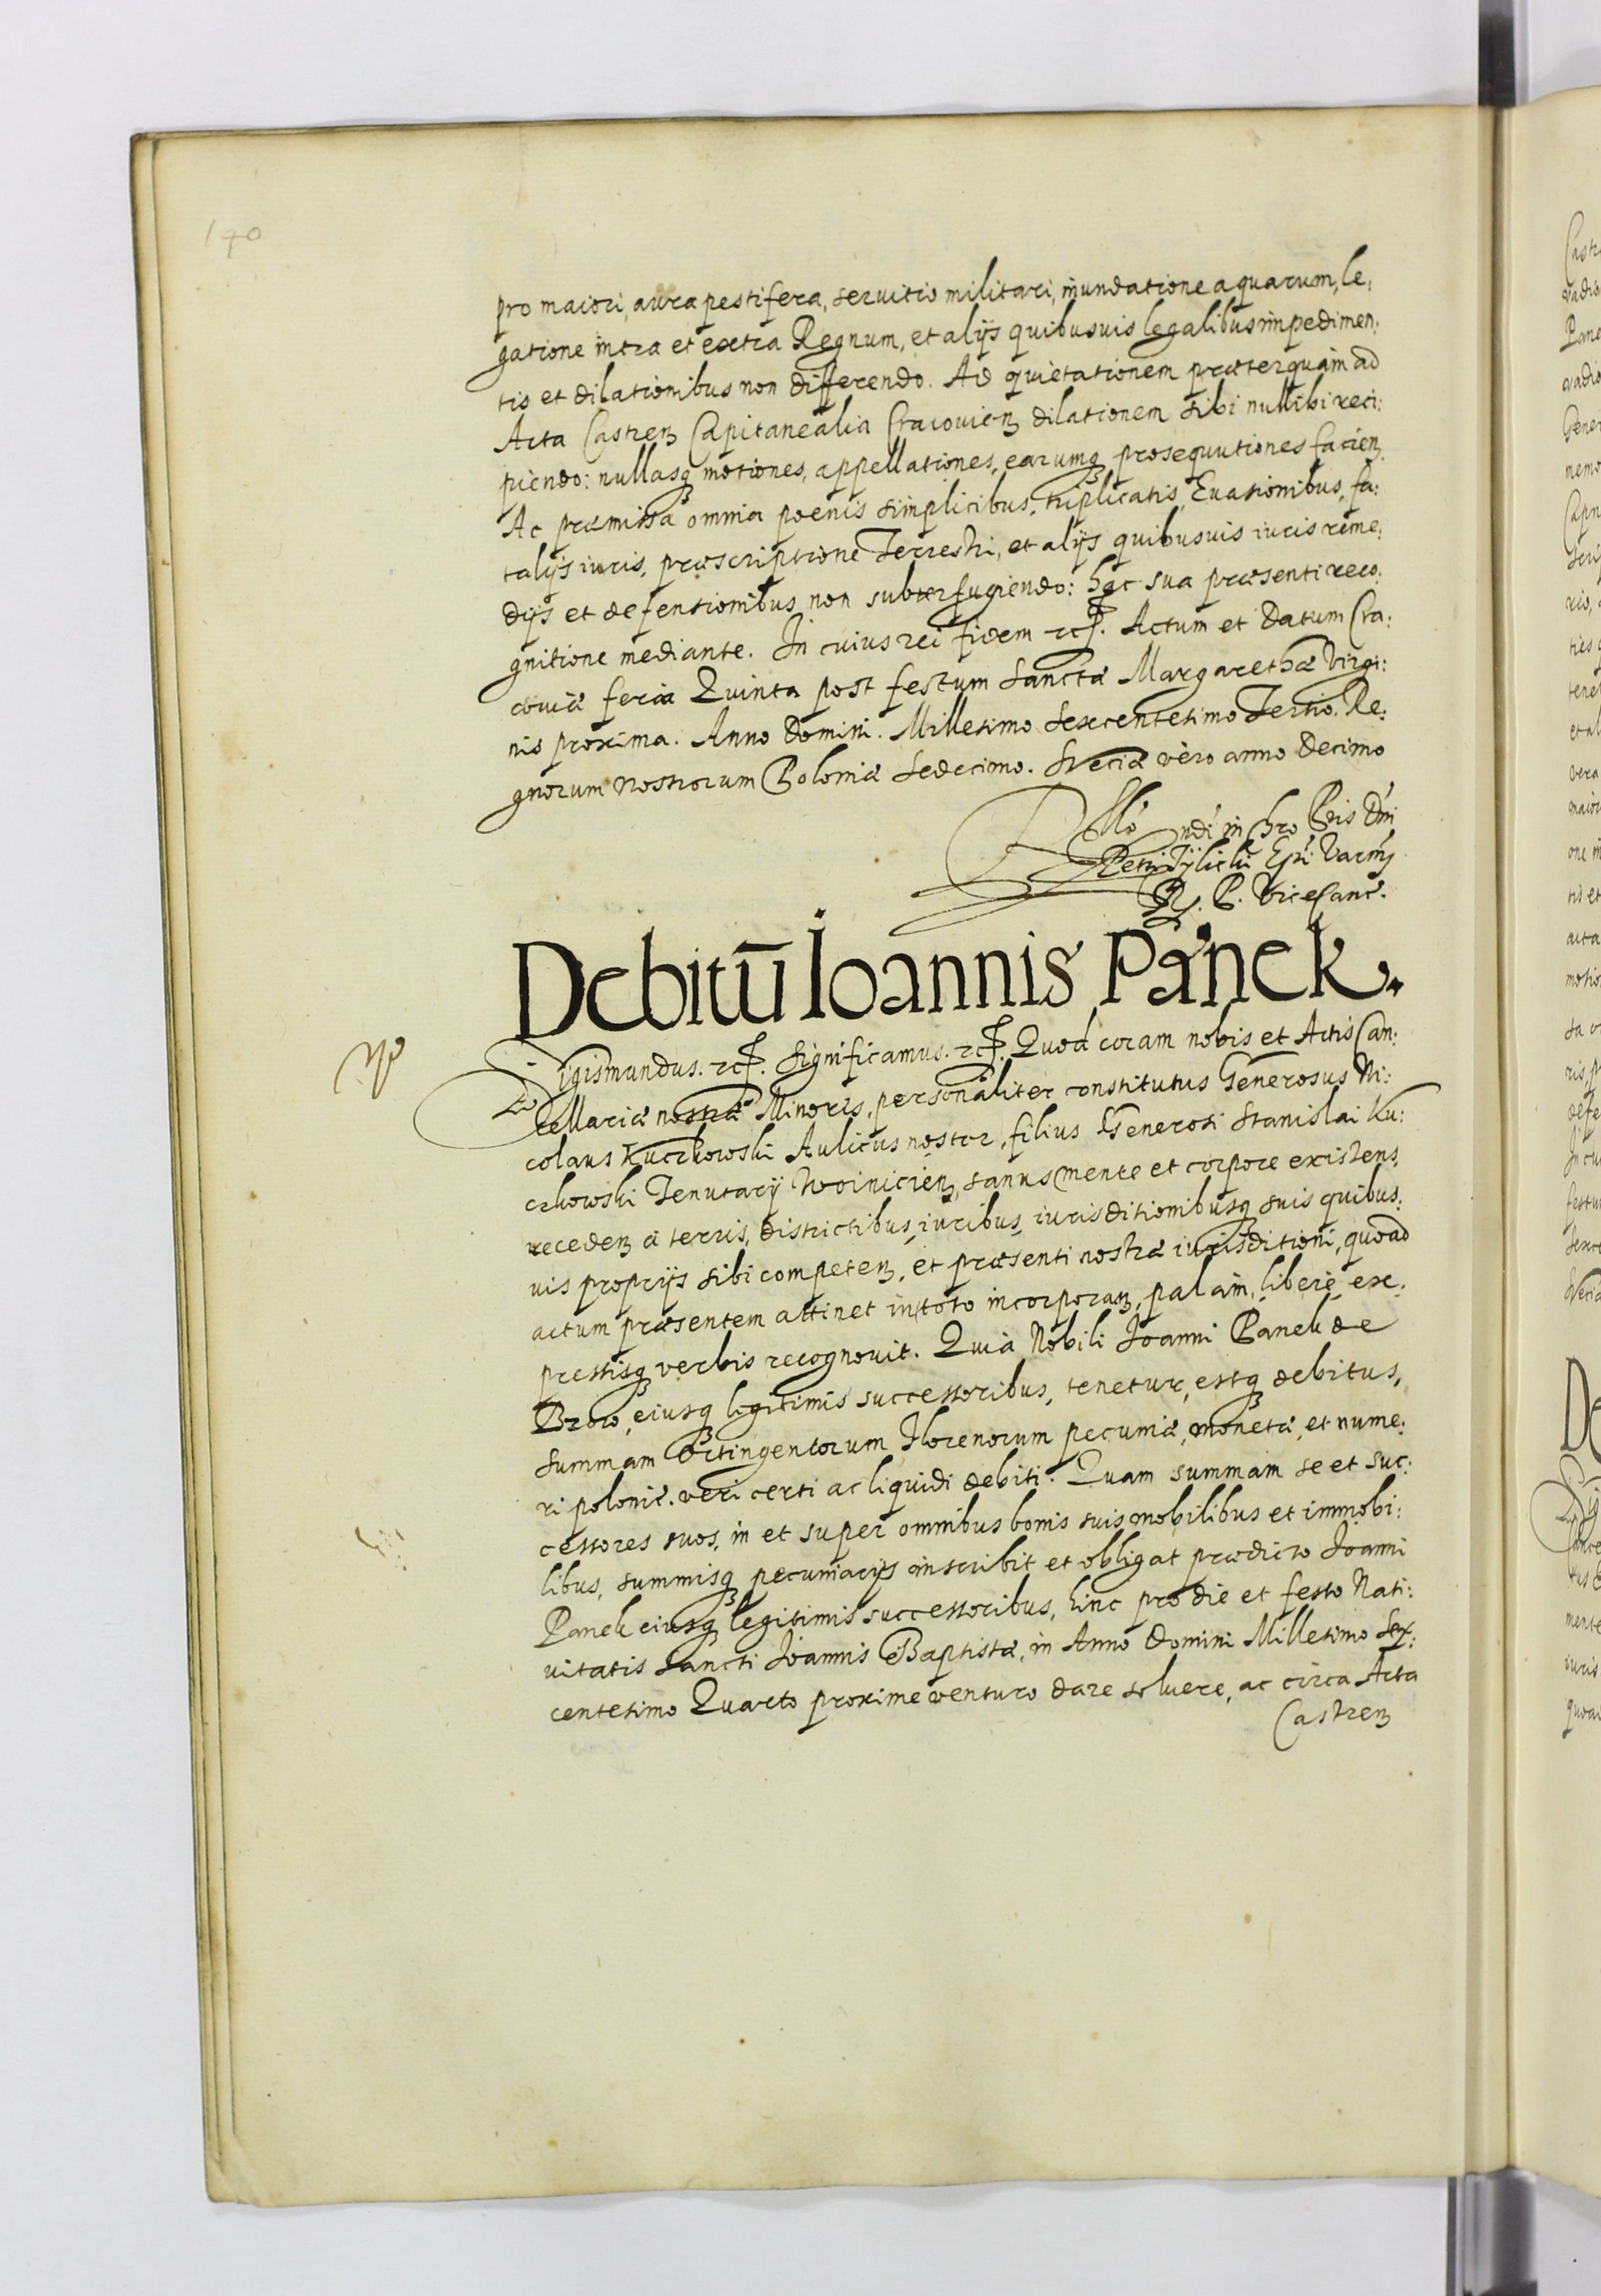 190
pro maiori, aura pestifera, seruitio militari, inundatione aquarum, le:
gatione intra et extra Regnum, et alijs quibusuis legalibus impedimen:
tis et dilationibus non differendo. Ad quietationem præterquam ad
Acta Castren Capitanealia Cracouien dilationem sibi nullibi reci:
piendo: nullasq motiones, appellationes, earumq prosequutiones facien
Ac præmissa omnia poenis simplicibus, triplicatis, Euasionibus, fa:
talijs iuris, præscriptione Terrestri, et alijs quibusuis iuris reme:
dijs et defensionibus non subterfugiendo: hac sua præsenti reco:
gnitione mediante. In cuius rei fidem etc. Actum et Datum Cra:
couiæ feria Quinta post festum Sanctæ Margarethæ Virgi:
nis proxima. Anno Domini. Millesimo Sexcentesimo Tertio. Re:
gnorum Nostrorum Poloniæ Sedecimo. Sveciæ vero anno Decimo
Rello ndi in Chro Pris Dni
Petri Tylicki Epi: Varm
R. P. ViceCanc.
Debitū Ioannis Panek.
Sigismundus. etc. Significamus. etc. Quod coram nobis et Actis Can:
cellariæ nostræ Minoris, personaliter constitutus Generosus Ni:
colaus Kuczkowski Aulicus noster, filius Generosi Stanislai Ku:
czkowski Tenutarij Woinicien, sanus mente et corpore existens,
recedem a terris, districtibus, iuribus, iurisditionibusq suis quibus:
uis proprijs sibi competen, et præsenti nostræ iurisditioni, quoad
actum præsentem attinet in toto incorporan, palam, libere, ex:
pressisq verbis recognouit. Quia Nobili Joanni Panek de
Brow, eiusq legitimis successoribus, tenetur, estq debitus,
summam Octingentorum florenorum pecuniæ, monetæ, et nume:
ri polonic. veri certi ac liquidi debiti. Quam summam se et suc:
cessores suos, in et super omnibus bonis suis mobilibus et immobi:
libus, summisq pecuniarijs inscribit et obligat prædicto Joanni
Panek eiusq legitimis successoribus, hinc pro die et festo Nati:
uitatis Sancti Joannis Baptistæ, in Anno Domini Millesimo Sex:
centesimo Quarto proxime venturo dare soluere, ac circa Acta
Castren